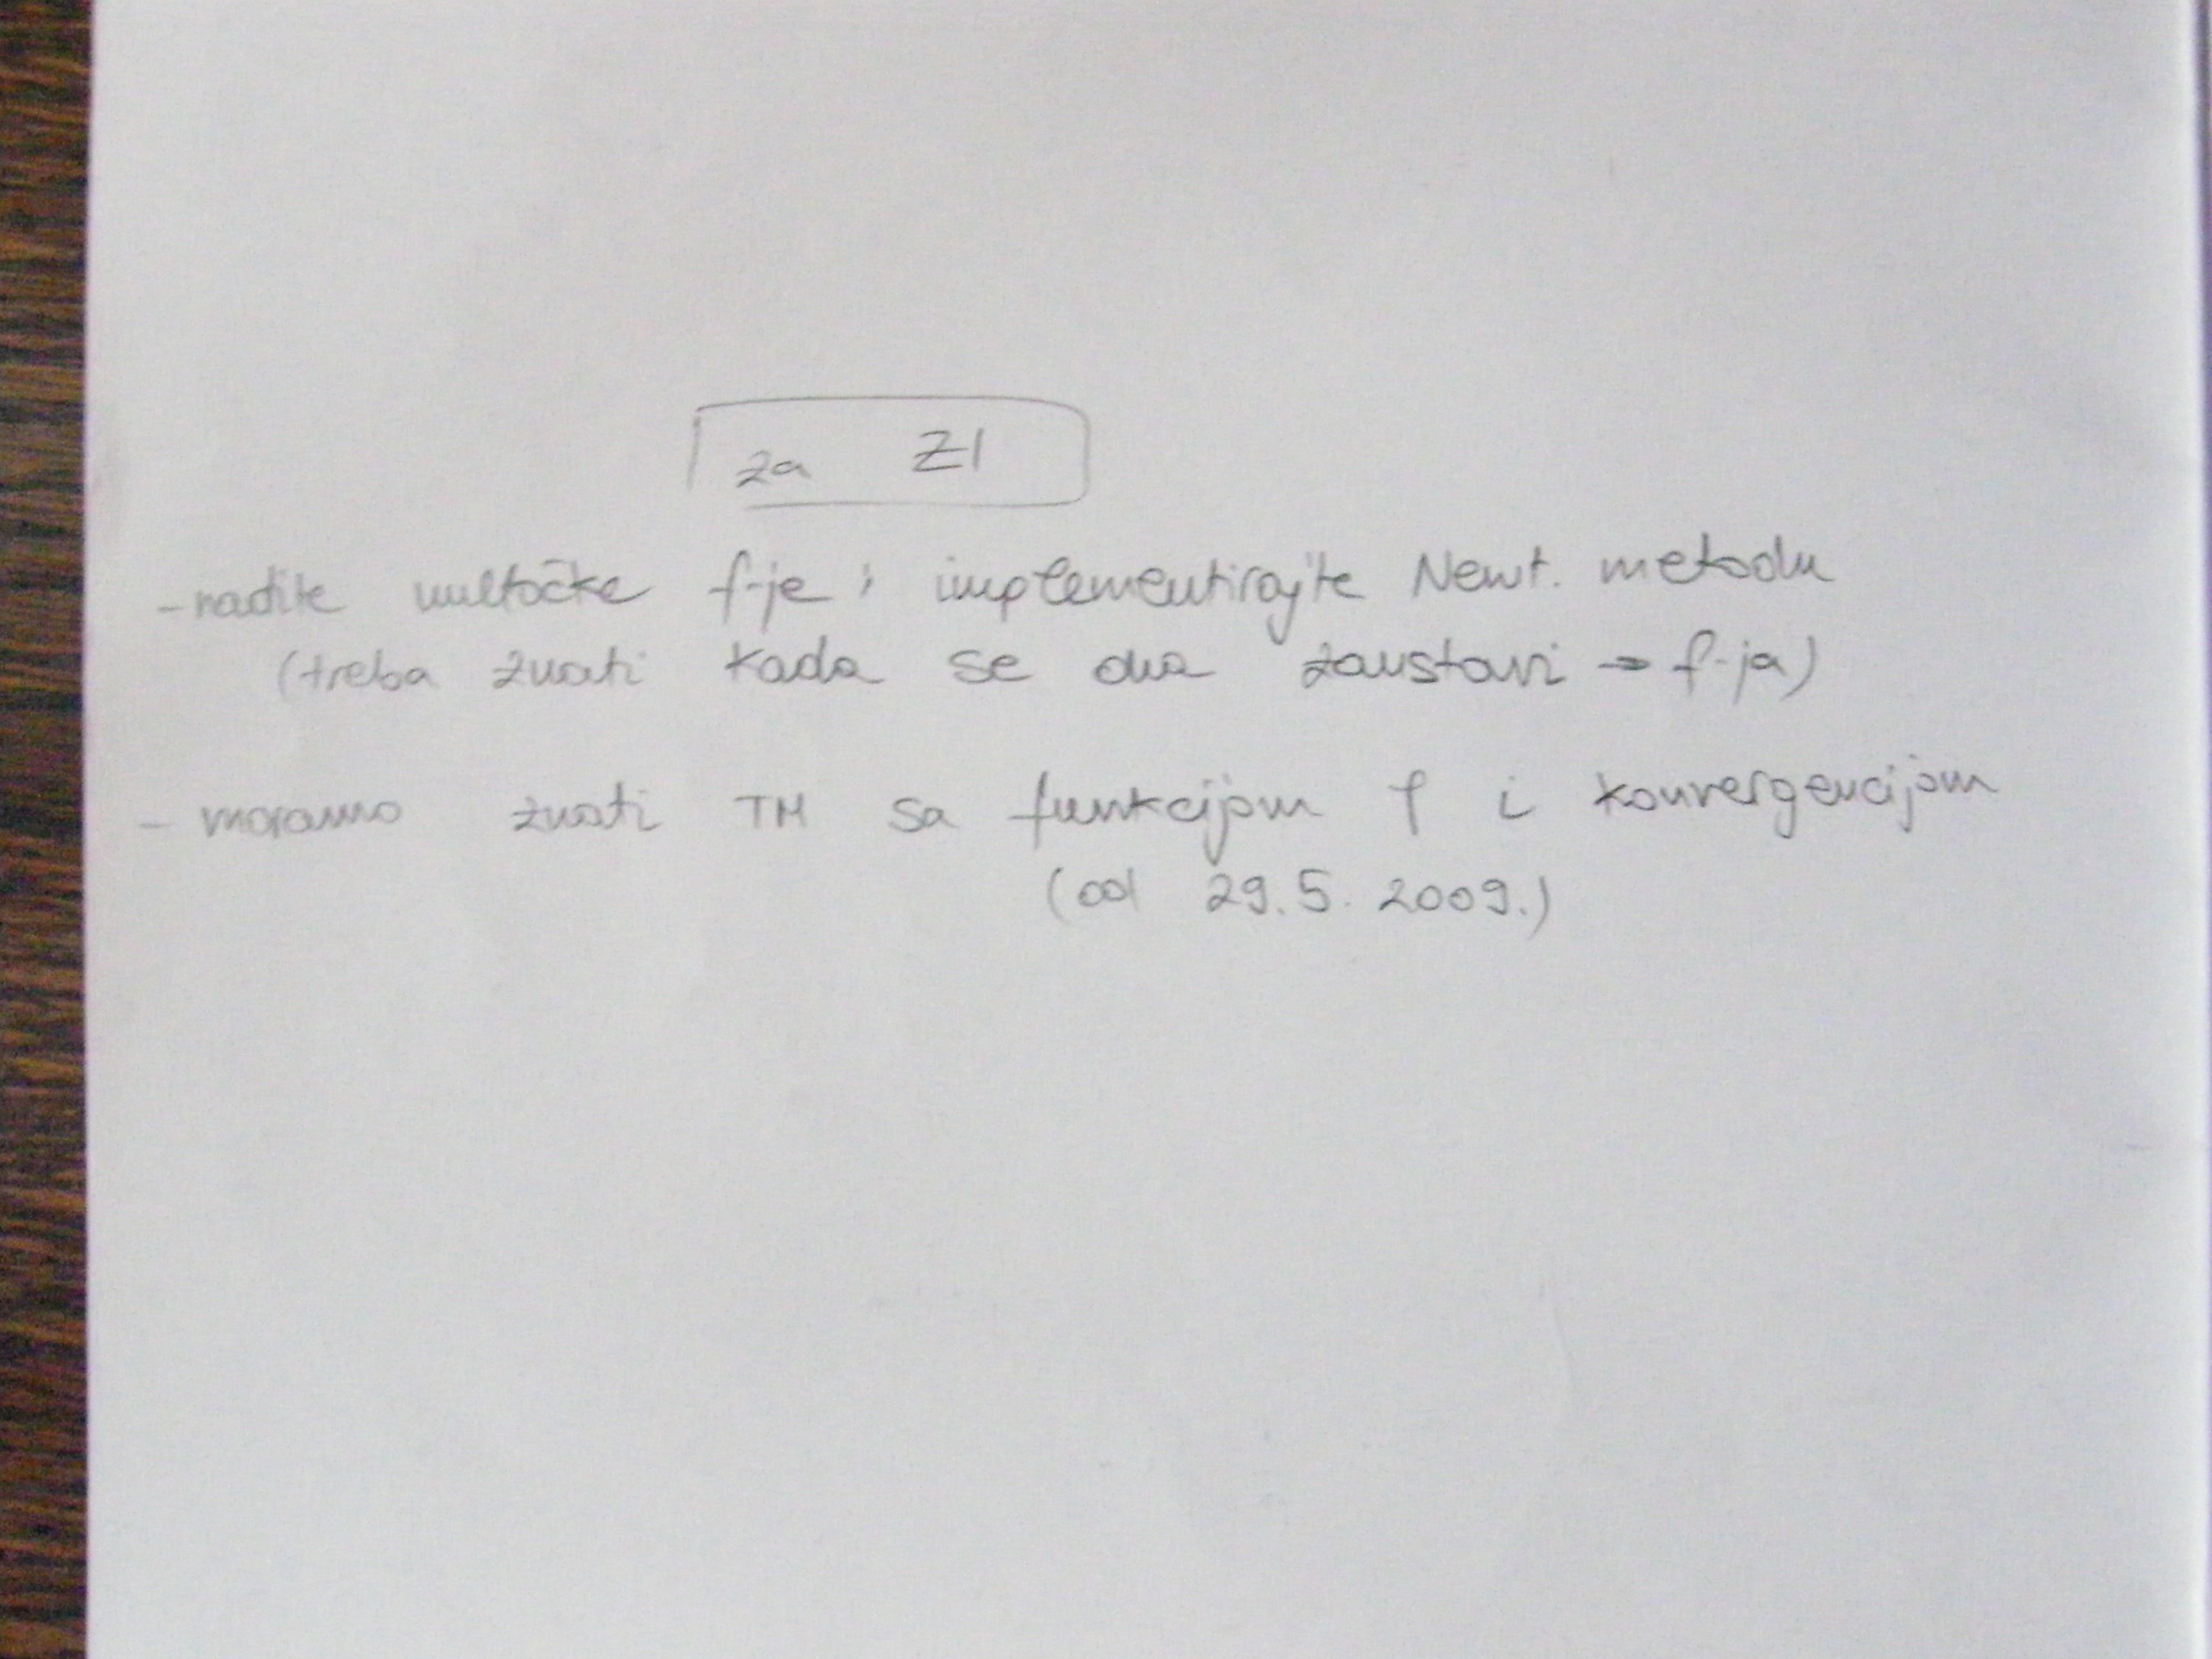 za ZI
- nađite nultočke f-je i implementirajte Newt. metodu
(treba znati kada se ona zaustavi → f-ja)
- moramo znati TM sa funkcijom f i konvergencijom
(od 29.5. 2009.)